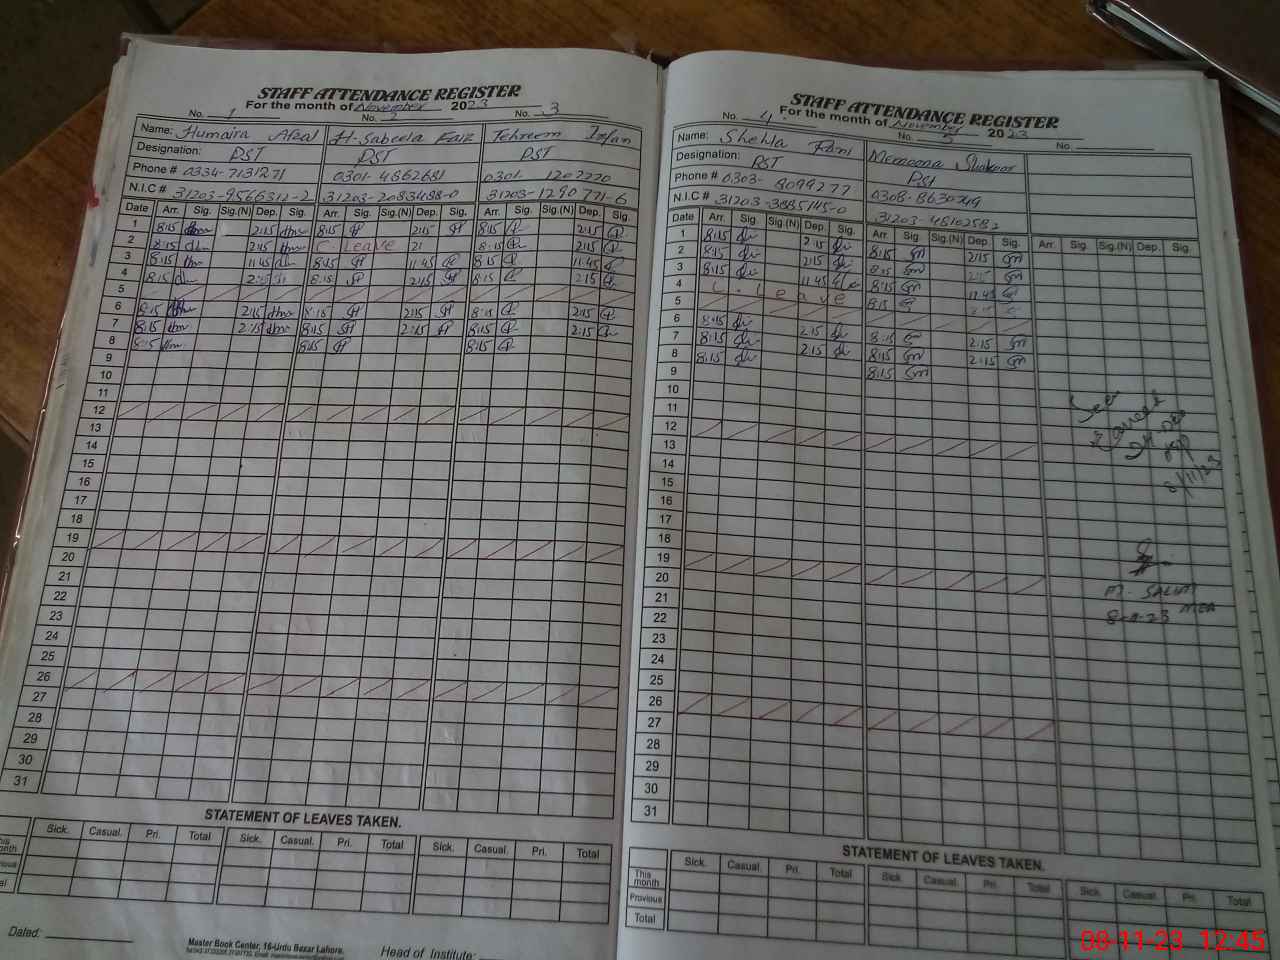 STAFF ATTENDANCE REGISTER
For the month of November 2023
No. 1 No. 2 No. 3
Name: Humaira Afzal H-Sabeela Faiz Tehreem Irfan
Designation: PST PST PST
Phone # 0334-7131271 0301-4862681 0301 1207220
N.I.C # 31203-9566312-2 31203-2083488-0 31203-1290771-6
Date Arr. Sig. Sig.(N) Dep. Sig. Arr. Sig. Sig.(N) Dep. Sig. Arr. Sig. Sig.(N) Dep. Sig.
1 8:15 2:15 8:15 2:15 8:15 2:15
2 8:15 2:15 C. Leave 21 8:15 2:15
3 8:15 11:45 8:15 11:45 8:15 11:45
4 8:15 2:15 8:15 2:15 8:15 2:15
5
6 8:15 2:15 8:15 2:15 8:15 2:15
7 8:15 2:15 8:15 2:15 8:15 2:15
8 8:15 8:15 8:15
9
10
11
12
13
14
15
16
17
18
19
20
21
22
23
24
25
26
27
28
29
30
31
STATEMENT OF LEAVES TAKEN.
Sick. Casual. Pri. Total Sick. Casual. Pri. Total Sick. Casual. Pri. Total
Dated:
Master Book Center, 16-Urdu Bazar Lahore.
Head of Institute:
STAFF ATTENDANCE REGISTER
For the month of November 2023
No. 4 No. 5 No.
Name: Shehla Memoona Shakoor
Designation: PST PST
Phone # 0303-8099277 0308-8630749
N.I.C # 31203-3885145-0 31203-4810582
Date Arr. Sig. Sig.(N) Dep. Sig. Arr. Sig. Sig.(N) Dep. Sig. Arr. Sig. Sig.(N) Dep. Sig.
1 8:15 2:15 8:15 2:15
2 8:15 2:15 8:15 2:15
3 8:15 11:45 8:15 11:45
4 C. Leave 8:15
5
6 8:15 2:15 8:15 2:15
7 8:15 2:15 8:15 2:15
8 8:15 8:15
9
10
11
12
13
14
15
16
17
18
19
20
21
22
23
24
25
26
27
28
29
30
31
Seen
8/11/23
M. SALIM
MEA
8-11-23
STATEMENT OF LEAVES TAKEN.
Sick. Casual. Pri. Total Sick. Casual. Pri. Total Sick. Casual. Pri. Total
This month
Previous
Total
08-11-23 12:45